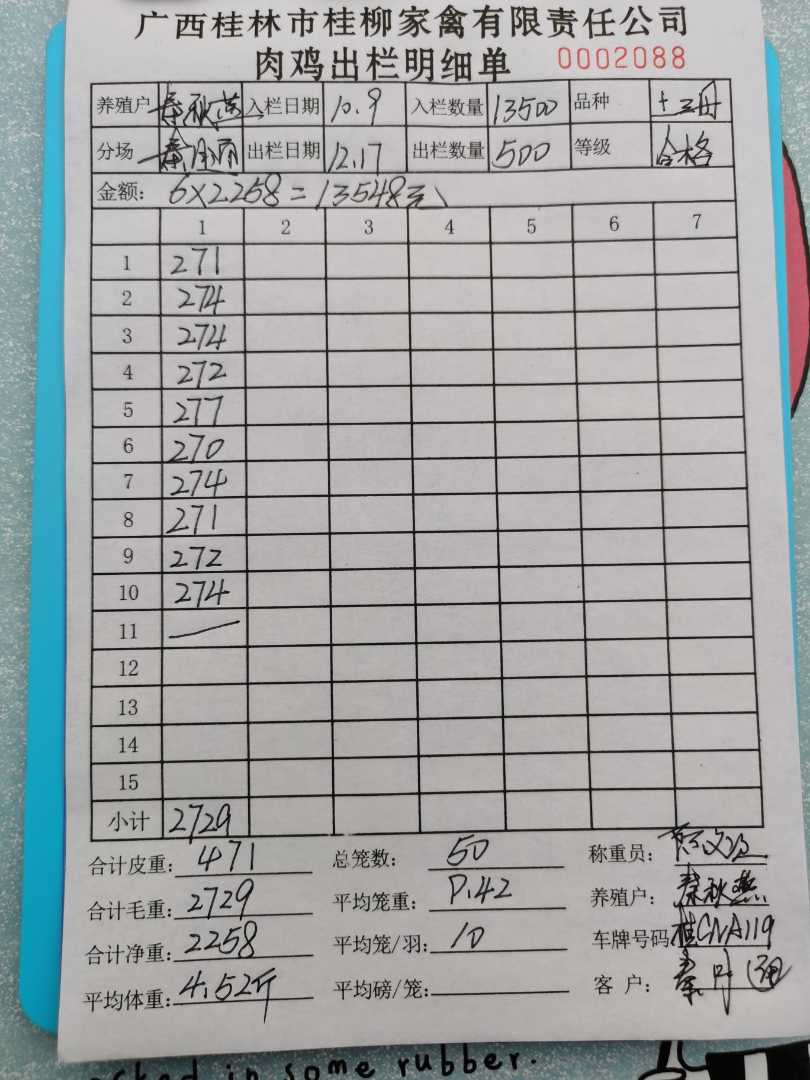 广西桂林市桂柳家禽有限责任公司
肉鸡出栏明细单 0002088
养殖户 秦秋燕 入栏日期 10.9 入栏数量 13500 品种 土二
分场 秦 出栏日期 12.17 出栏数量 500 等级 合格
金额: 6×2258=13548元
1 2 3 4 5 6 7
1 271
2 274
3 274
4 272
5 277
6 270
7 274
8 271
9 272
10 274
11
12
13
14
15
小计 2729
合计皮重: 471 总笼数: 50 称重员:
合计毛重: 2729 平均笼重: 9.42 养殖户: 秦秋燕
合计净重: 2258 平均笼/羽: 10 车牌号码 桂CNA119
平均体重: 4.52斤 平均磅/笼: 客户: 秦
in some rubber.